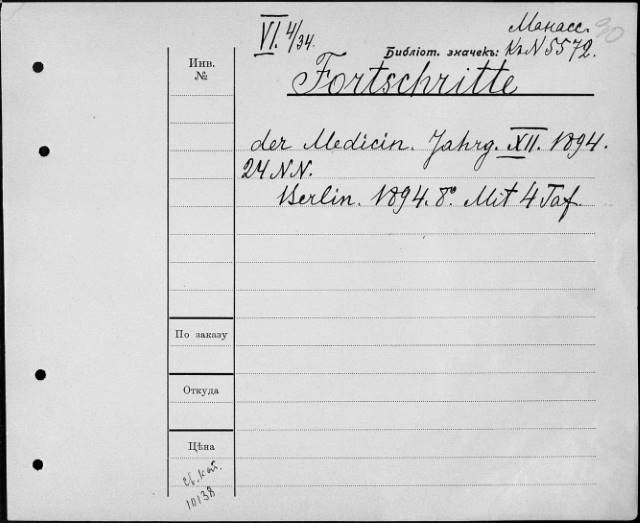 VI. 4/34.
Манасс. 90
Библіот. значекъ: Кк N 5572.
Инв.
№
Fortschritte
der Medicin. Jahrg. XII. 1894.
24 NN.
Berlin. 1894. 8°. Mit 4 Taf.
По заказу
Откуда
Цѣна
10138